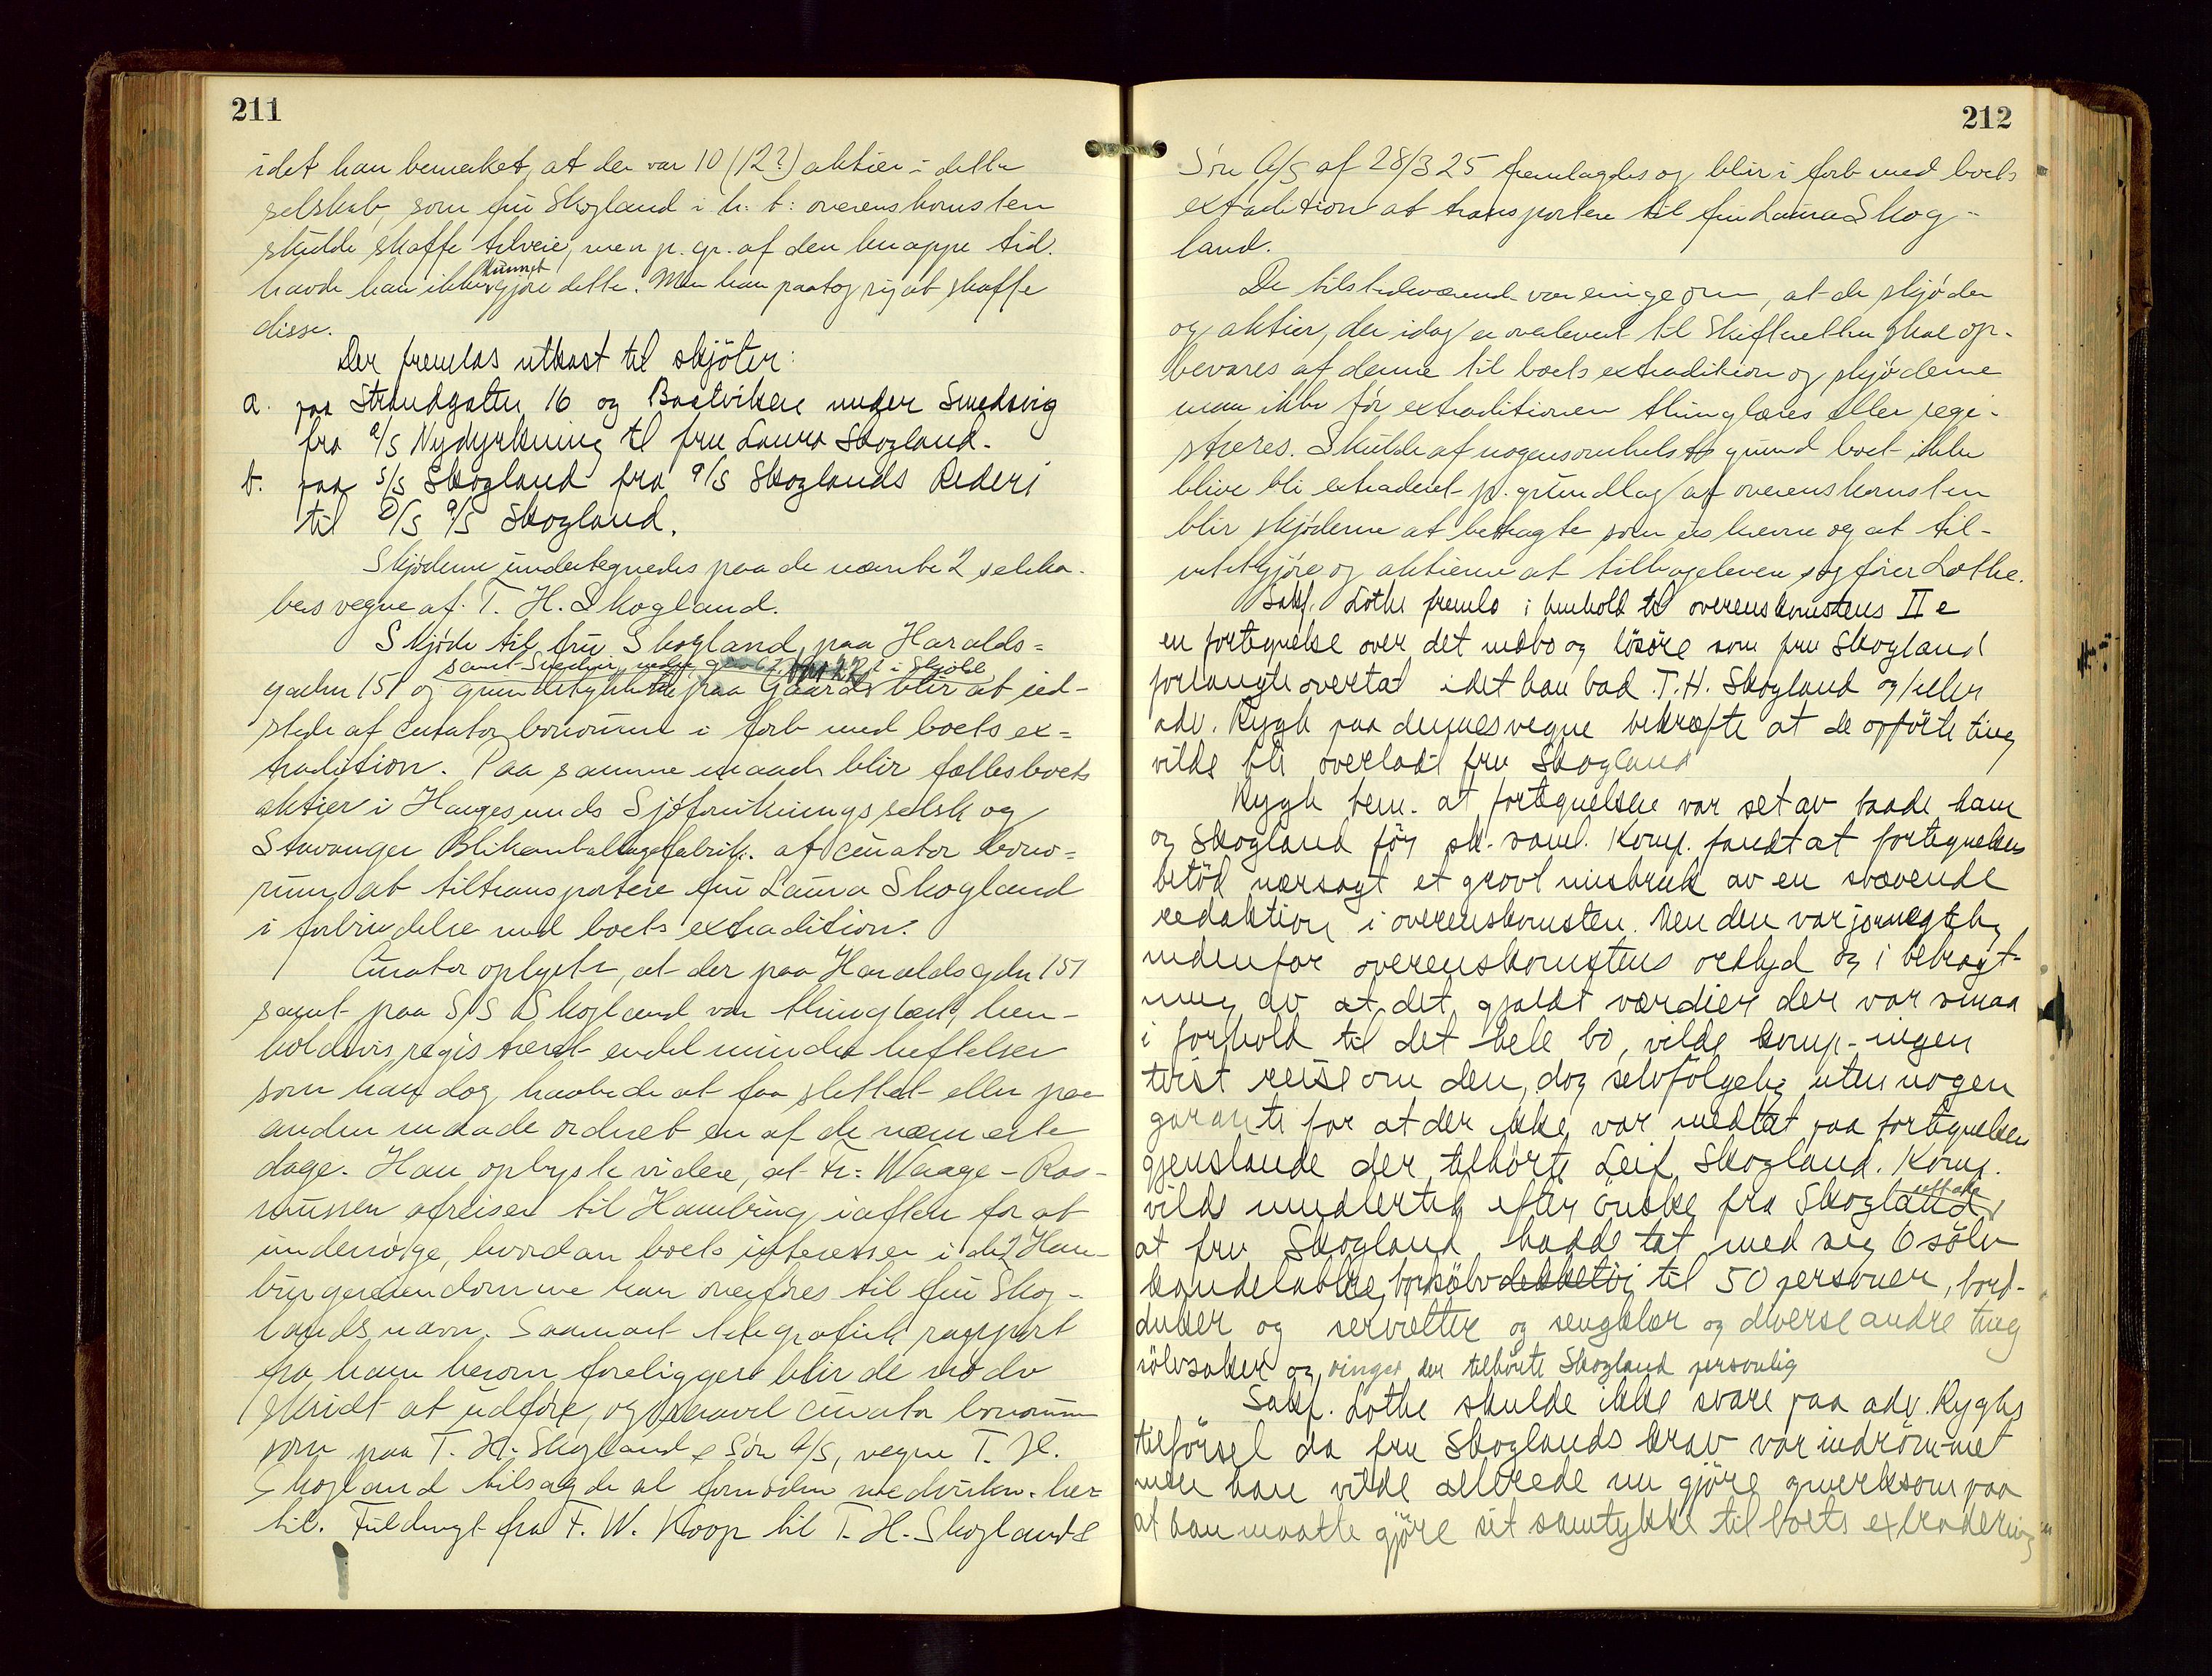 211
idet han bemerket, at der var 10 (12?) aktier i dette
selskab, som fru Skogland i h. t: overenskomsten
skulde skaffe tilveie, men p. gr. af den knappe tid
havde han ikke kunnet gjøre dette. Men han paatog sig at skaffe
disse.
Der fremlas utkast til skjöter:
a. paa Strandgaten 16 og Bastviken under Smedsvig
fra A/S Nydyrkning til fru Laura Skogland.
b. paa S/S Skogland fra A/S Skoglands Rederi
til D/S A/S Skogland.
Skjøderne undertegnedes paa de nævnte 2 selska-
bers vegne af T. H. Skogland.
Skjøde til fru Skogland paa Haralds=
samt i Skjold
gaden 151 og grundstykkerne paa Gaard blir at ud-
stede af curator bonorum i forb med boets ex=
tradition. Paa samme maade blir fællesboets
aktier i Haugesunds Sjöforsikringsselsk og
Stavanger Blikemballagefabrik af curator bono=
rum at tiltransportere fru Laura Skogland
i forbindelse med boets extradition.
Curator oplyste, at der paa Haraldsgdn 151
samt paa S/S Skogland var thinglæst, hen-
holdsvis registreret endel mindre heftelser
som han dog haabede at faa slettet eller paa
anden maade ordnet en af de nærmeste
dage. Han oplyste videre, at Fr: Waage-Ras-
mussen afreiser til Hamburg iaften for at
undersøge, hvordan boets interesser i de 2 Ham-
burgereiendomme kan overføres til fru Skog-
lands navn. Saasnart telegrafisk rapport
fra ham herom foreligger blir de nødv
skridt at udføre, og saavel curator bonorum
som paa T. H. Skogland & Søn A/S, vegne T. H.
Skogland tilsagde al fornøden medvirken her=
til. Fuldmagt fra F. W. Koop til T. H. Skogland &
212
Søn A/S af 28/3 25 fremlagdes og blir i forb med boets
extradition at transportere til fru Laura Skog-
land.
De tilstedeværende var enige om, at de skjøder
og aktier, der idag er overlevert til Skifteretten skal op-
bevares af denne til boets extradition og skjøderne
maa ikke før extraditionen thinglæses eller regi-
streres. Skulde af nogensomhelst grund boet ikke
blive bli extraderet p. grundlag af overenskomsten
blir skjøderne at betragte som uskrevne og at til-
intetgjøre og aktierne at tilbagelevere sagfører Lothe.
Sakf. Lothe fremla i henhold til overenskomstens II e
en fortegnelse over det indbo og lösöre som fru Skogland
forlangte overtat idet han bad T. H. Skogland og/eller
adv. Rygh paa dennes vegne bekræfte at de opförte ting
vilde bli overladt fru Skogland
Rygh bem. at fortegnelsen var set av baade ham
og Skogland för sk. saml. Komp. fandt at fortegnelsen
betöd næsagt et grovt misbruk av en svævende
redaktion i overenskomsten. Men den var jo
indenfor overenskomstens ordlyd og i betragt-
ning av at det gjaldt værdier der var smaa
i forhold til det hele bo, vilde komp. ingen
tvist reise om den, dog selvfölgelig uten nogen
garanti for at der ikke var medtat paa fortegnelsen
gjenstande der tilhörte Leif Skogland. Komp.
vilde imidlertid efter önske fra Skogland uttale
at fru Skogland hadde tat med sig 6 sölv
kandelabre, dekketöi til 50 personer, bord-
duker og servietter og sengklær og diverse andre ting
sölvsaker og ringer der tilhörte Skogland personlig
Sakf. Lothe skulde ikke svare paa adv. Ryghs
tilförsel da fru Skoglands krav var indrömmet
men han vilde allerede nu gjöre opmerksom paa
at han maatte gjöre sit samtykke til boets extradering